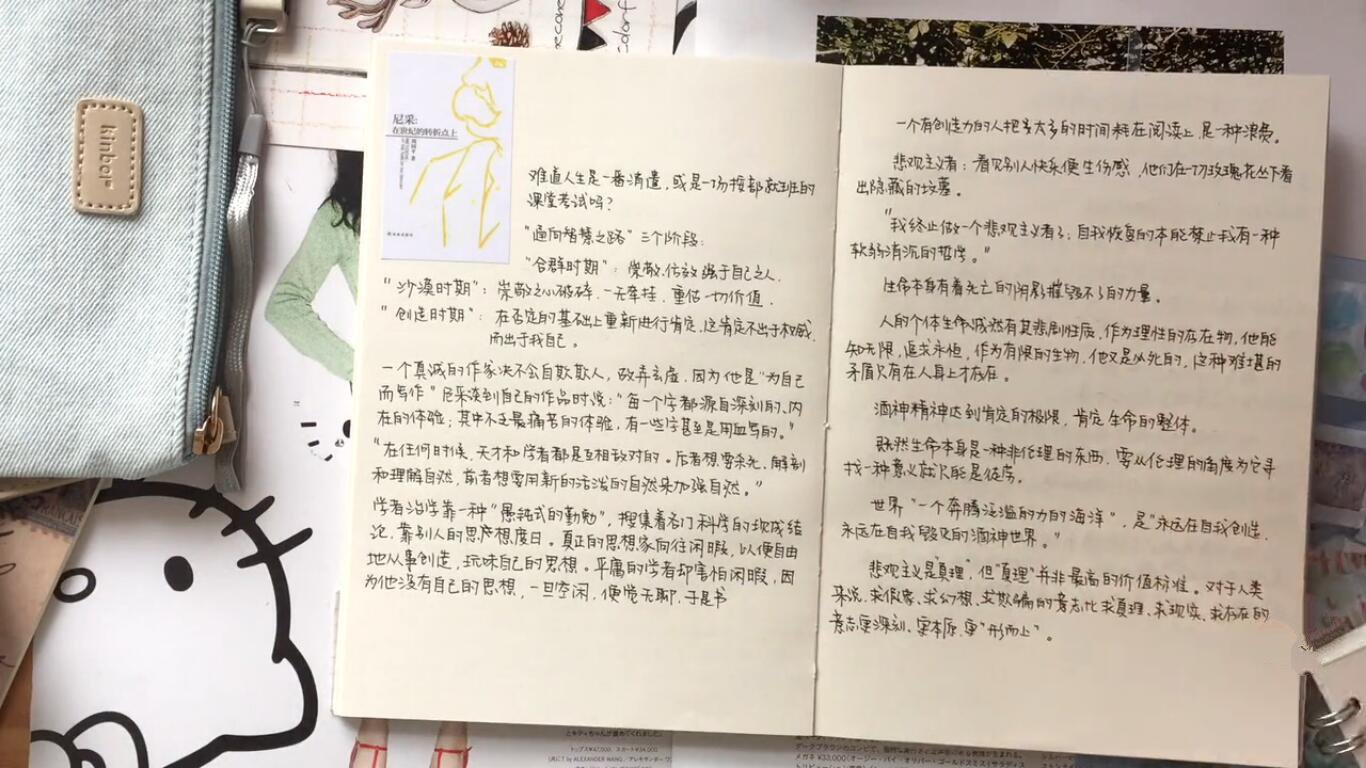 kinbor
尼采:
在世纪的转折点上
难道人生是一番消遣，或是一场按部就班的
课堂考试吗？
“通向智慧之路”三个阶段：
“合群时期”：崇敬、仿效强于自己之人．
“沙漠时期”：崇敬之心破碎．一无牵挂．重估一切价值．
“创造时期”：在否定的基础上重新进行肯定，这肯定不出于权威，
而出于我自己。
一个真诚的作家决不会自欺欺人，故弄玄虚，因为他是“为自己
而写作”尼采谈到自己的作品时说：“每一个字都源自深刻的、内
在的体验；其中不乏最痛苦的体验，有一些字甚至是用血写的。”
“在任何时候，天才和学者都是互相敌对的。后者想要杀死、解剖
和理解自然，前者想要用新的活泼的自然来加强自然。”
学者治学靠一种“愚钝式的勤勉”，搜集着各门科学的现成结
论，靠别人的思想度日。真正的思想家向往闲暇，以便自由
地从事创造，玩味自己的思想。平庸的学者却害怕闲暇，因
为他没有自己的思想，一旦空闲，便觉无聊，于是书
一个有创造力的人把太多的时间耗在阅读上，是一种浪费。
悲观主义者：看见别人快乐便生伤感，他们在一切玫瑰花丛下看
出隐藏的坟墓。
“我终止做一个悲观主义者了；自我恢复的本能禁止我有一种
软弱消沉的哲学。”
生命本身有着死亡的阴影摧毁不了的力量。
人的个体生命诚然有其悲剧性质，作为理性的存在物，他能
知无限，追求永恒，作为有限的生物，他又是必死的，这种难堪的
矛盾只有在人身上才存在。
酒神精神达到肯定的极限，肯定生命的整体。
既然生命本身是一种非伦理的东西，要从伦理的角度为它寻
找一种意义就只能是徒劳。
世界“一个奔腾泛滥的力的海洋”，是“永远在自我创造．
永远在自我毁灭的酒神世界。”
悲观主义是真理”，但“真理”并非最高的价值标准。对于人类
来说，求假象、求幻想、求欺骗的意志比求真理、求现实、求存在的
意志更深刻、更本原、更“形而上”。
トップス¥47,000、スカート¥34,000